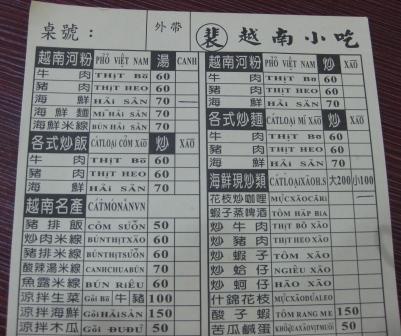 桌號：
外帶
裴 越南小吃
越南河粉 PHỞ VIỆT NAM 湯 CANH
牛肉 THỊT BÒ 60
豬肉 THỊT HEO 60
海鮮 HẢI SẢN 70
海鮮麵 MÌ HẢI SẢN 70
海鮮米線 BÚN HẢI SẢN 70
各式炒飯 CÁTLOẠI CƠM XÀO 炒 XÀO
牛肉 THỊT BÒ 60
豬肉 THỊT HEO 60
海鮮 HẢI SẢN 70
越南名產 CÁTMÓNĂNVN
豬排飯 CƠM SƯỜN 50
炒肉米線 BÚNTHỊTXÀO 60
豬排米線 BÚNTHỊTSƯỜN 60
酸辣湯米線 CANHCHUABÚN 70
魚露米線 BÚN RIÊU 60
涼拌生菜 GỎI BÒ 牛豬 100
涼拌海鮮 GỎI HẢI SẢN 150
涼拌木瓜 GỎI ĐUĐỦ 50
越南河粉 PHỞ VIỆT NAM 炒 XÀO
牛肉 THỊT BÒ 60
豬肉 THỊT HEO 60
海鮮 HẢI SẢN 70
各式炒麵 CÁTLOẠI MÌ XÀO 炒 XÀO
牛肉 THỊT BÒ 60
豬肉 THỊT HEO 60
海鮮 HẢI SẢN 70
海鮮現炒類 CÁTLOẠIXÀOH.S 大200 小100
花枝炒咖哩 MỰCXÀOCÀRI
蝦子蒸啤酒 TÔM HẤP BIA
炒牛肉 THỊT BÒ XÀO
炒豬肉 THỊT HEO XÀO
炒蝦子 TÔM XÀO
炒蛤仔 NGHÊU XÀO
炒蚵仔 HÀO XÀO
什錦花枝 MỰCXÀODƯALEO
酸子蝦 TÔM RANG ME 150
苦瓜鹹蛋 50